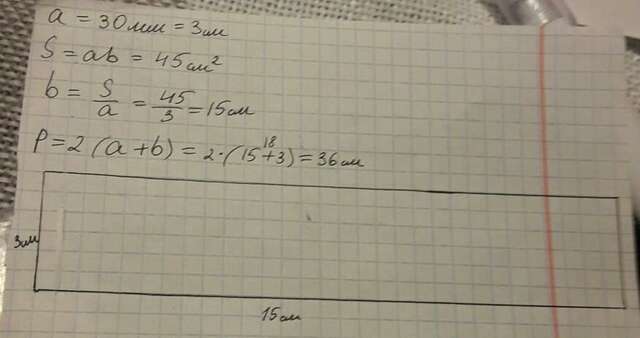 a = 30мм = 3см
S = ab = 45см²
b = S/a = 45/3 = 15см
P = 2 (a + b) = 2 · (15 + 3) = 36см
18
3см
15см